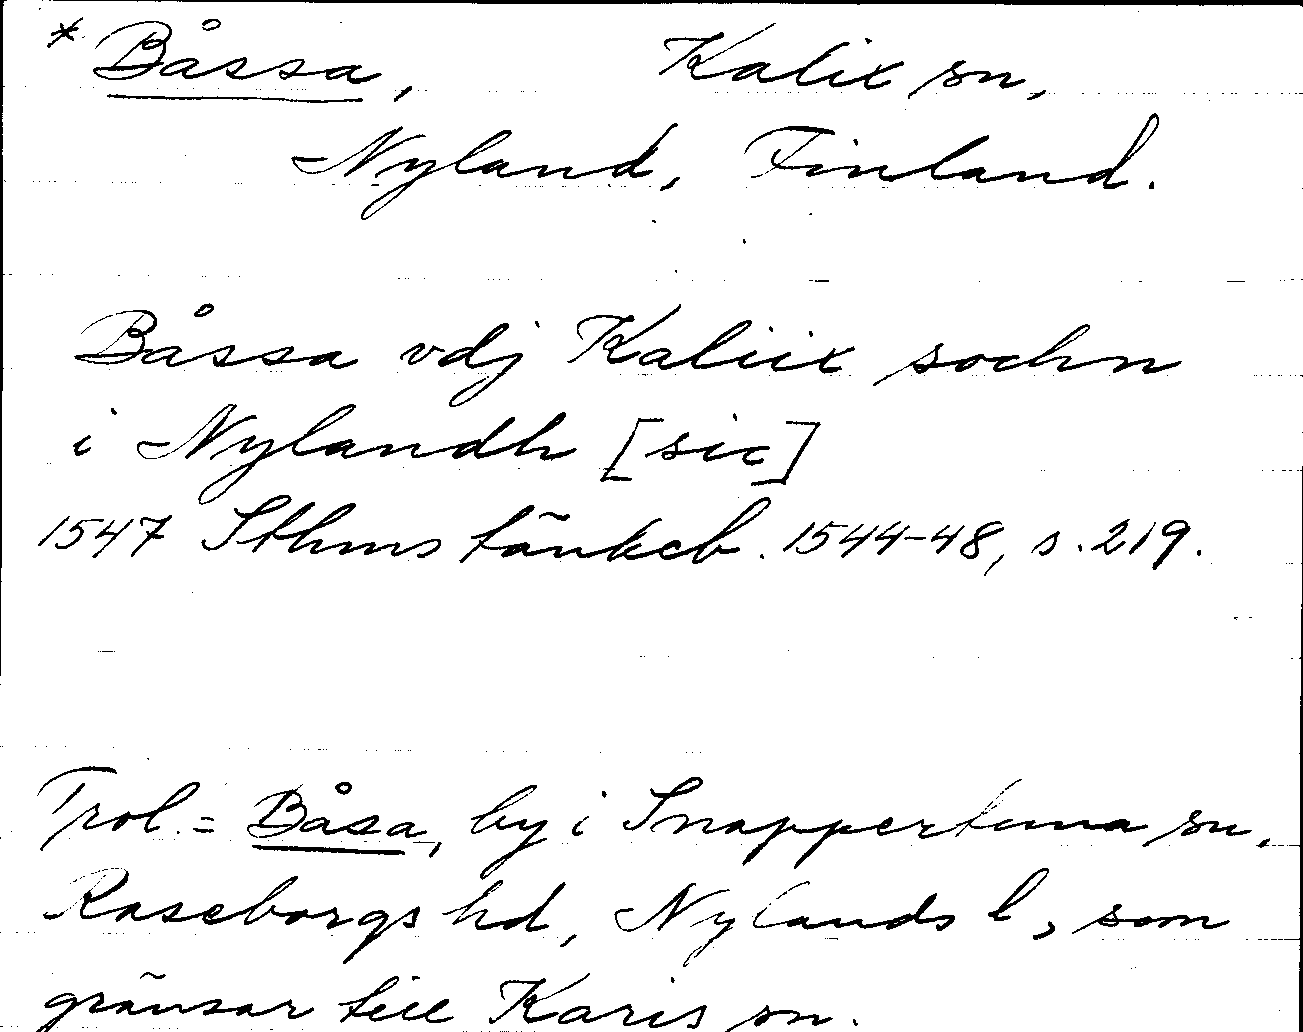 * Båssa, Kalix sn,
Nyland, Finland.
Båssa vdj Kaliix sochn
i Nylandh [sic]
1547 Sthms tänkeb. 1544-48, s. 219.
Trol. = Båsa, by i Snappertuna sn,
Raseborgs hd, Nylands l, som
gränsar till Karis sn.